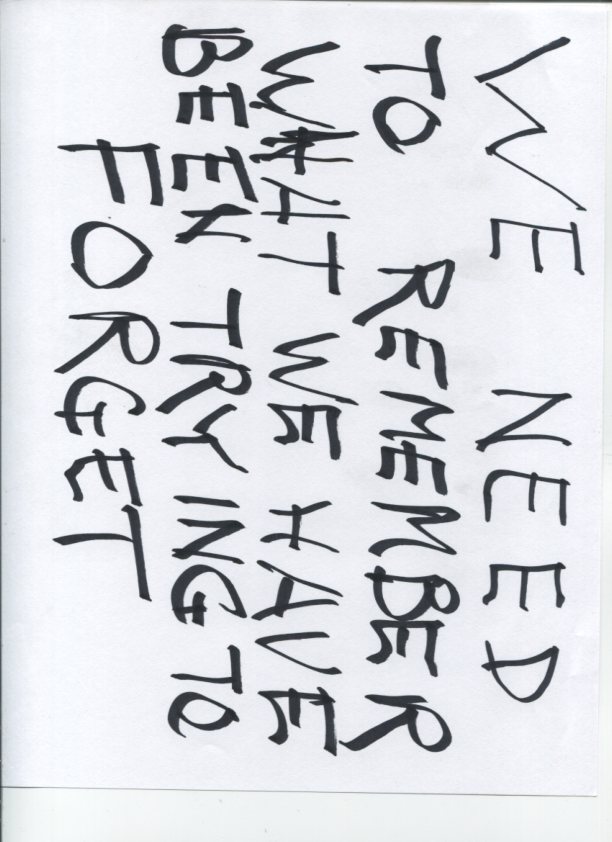 WE NEED
TO REMEMBER
WHAT WE HAVE
BEEN TRYING TO
FORGET